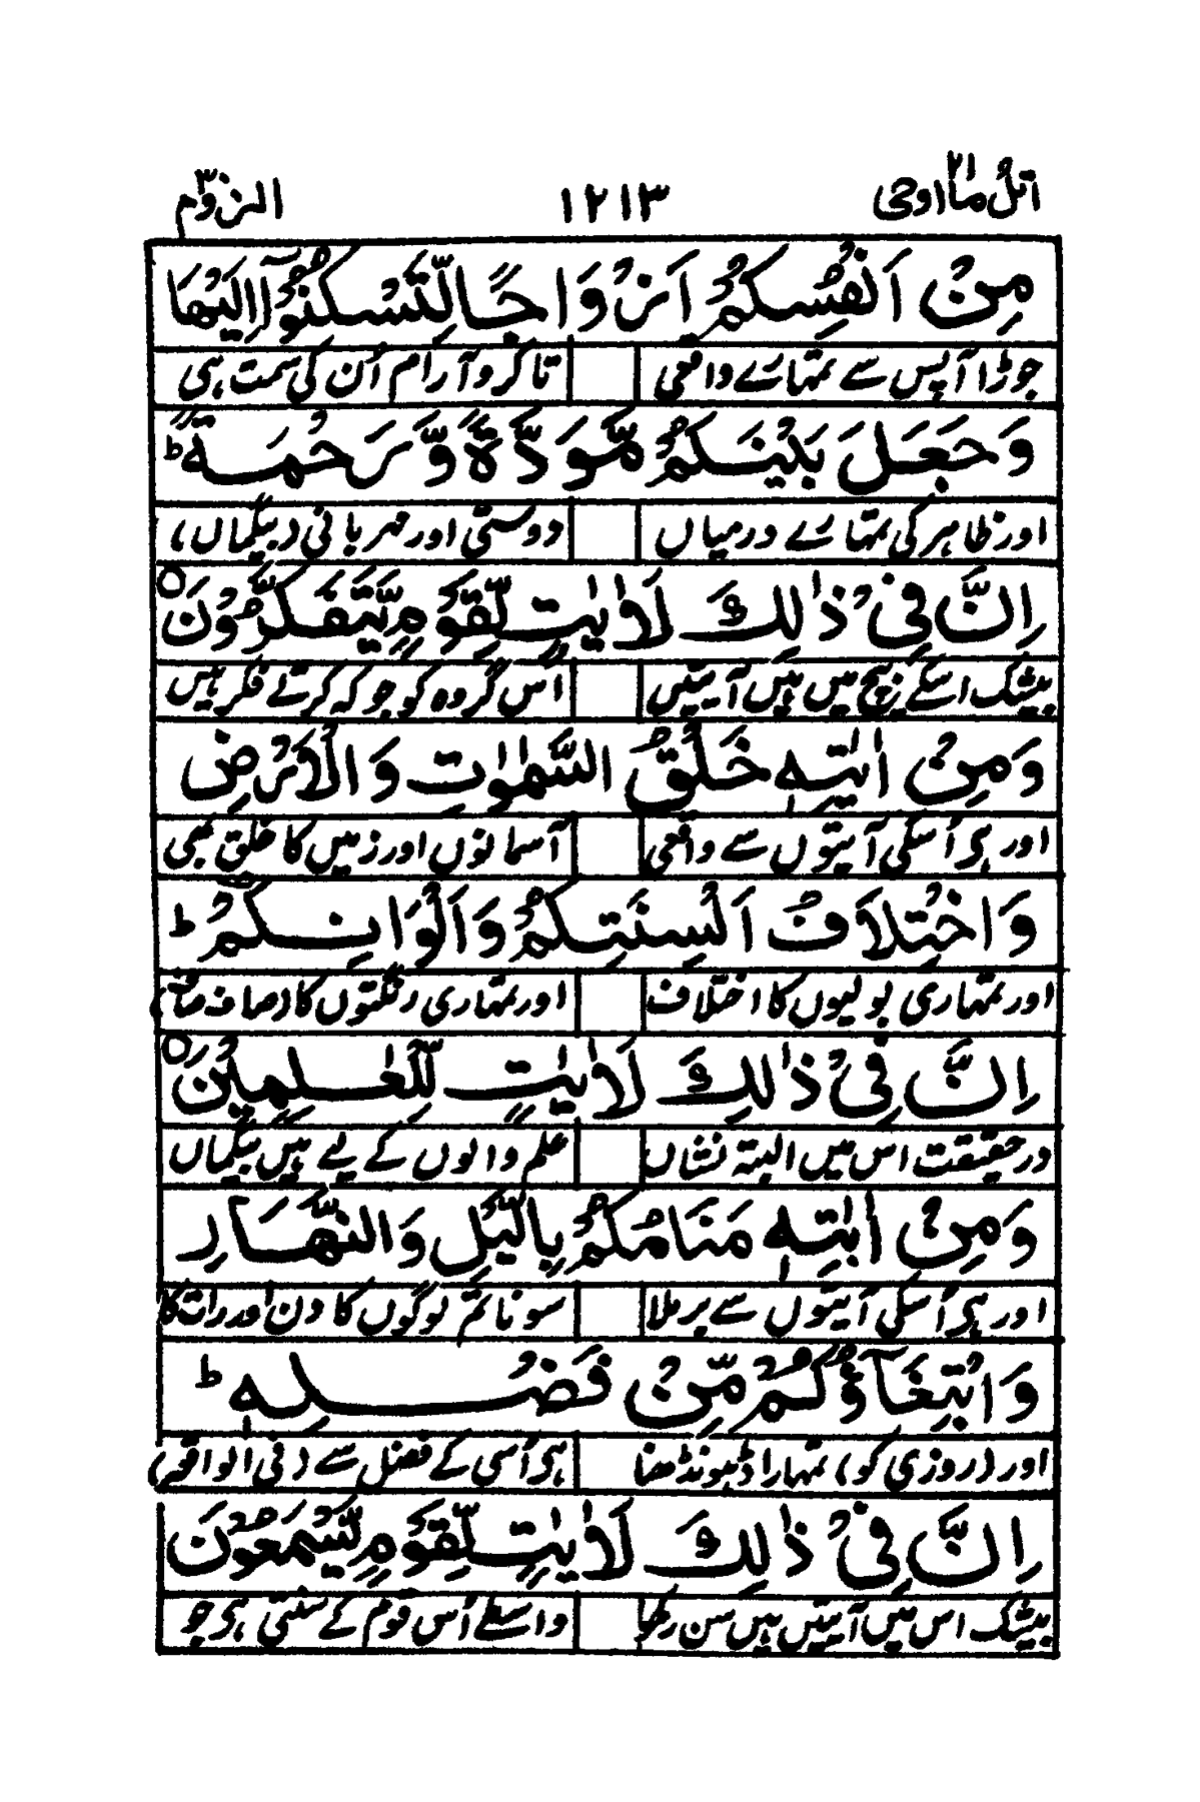 اتل ما اوحی ٢١ ١٢١٣ الروم ٣٠
مِنْ اَنْفُسِكُمْ اَزْوَاجًا لِّتَسْكُنُوْٓا اِلَيْهَا
جوڑا آپس سے تمہارے واقعی تا کرو آرام اُن کی سمت ہی
وَجَعَلَ بَيْنَكُمْ مَّوَدَّةً وَّرَحْمَةً ؕ
اور ظاہر کی تمہارے درمیاں دوستی اور مہربانی (بیگماں)
اِنَّ فِيْ ذٰلِكَ لَاٰيٰتٍ لِّقَوْمٍ يَّتَفَكَّرُوْنَ ○
بیشک اسکے بیچ میں ہیں آیتیں اُس گروہ کو جو کہ کرتے فکر ہیں
وَمِنْ اٰيٰتِهٖ خَلْقُ السَّمٰوٰتِ وَالْاَرْضِ
اور ہی اُسکی آیتوں سے واقعی آسمانوں اور زمیں کا خلق بھی
وَاخْتِلَافُ اَلْسِنَتِكُمْ وَاَلْوَانِكُمْ ؕ
اور تمہاری بولیوں کا اختلاف اور تمہاری رنگتوں کا (صاف صاف)
اِنَّ فِيْ ذٰلِكَ لَاٰيٰتٍ لِّلْعٰلِمِيْنَ ○
درحقیقت اس میں البتہ نشاں علم والوں کے لیے ہیں بیگماں
وَمِنْ اٰيٰتِهٖ مَنَامُكُمْ بِالَّيْلِ وَالنَّهَارِ
اور ہی اُسکی آیتوں سے برملا سونا تم لوگوں کا دن اور رات کا
وَابْتِغَآؤُكُمْ مِّنْ فَضْلِهٖ ؕ
اور (روزی کو) تمہارا ڈہونڈھنا ہی اُسی کے فضل سے (فی الواقعہ)
اِنَّ فِيْ ذٰلِكَ لَاٰيٰتٍ لِّقَوْمٍ يَّسْمَعُوْنَ
بیشک اس میں آیتیں ہیں سن رکھا واسطے اُس قوم کے سنتی ہی جو